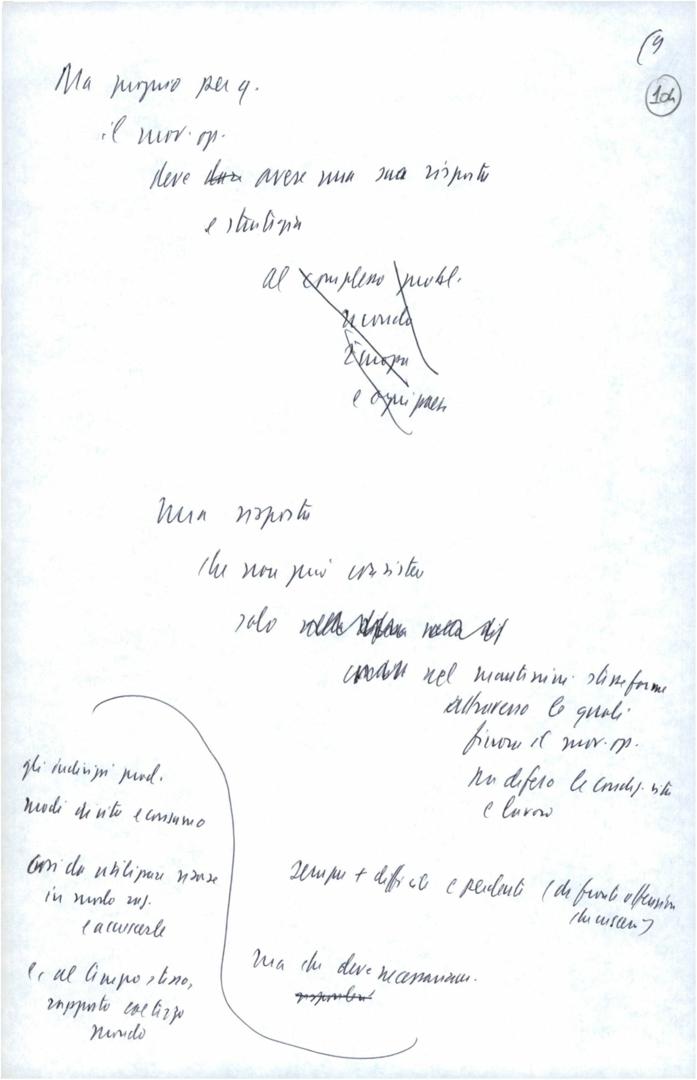 (9
104
Ma proprio per q.
il mov. op.
deve avere una sua risposta
e strategia
al complesso probl.
mondo
Europa
e ogni paese
una risposta
che non può consistere
solo
nel mantenim. stesse forme
attraverso le quali
finora il mov. op.
ha difeso le condiz. vita
e lavoro
sempre + difficile e perdente (di fronte offensiva
ma che deve necessariam.
gli indirizzi prod.
modi di vita e consumo
così da utilizzare risorse
in modo raz.
e accrescerle
e, al tempo stesso,
rapporto col terzo
mondo